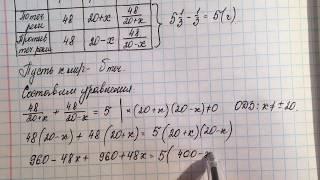 По теч. реки 48 20+x 48/20+x
Против теч. реки 48 20-x 48/20-x
5 1/3 - 1/3 = 5 (ч)
Пусть x км/ч -
Составим уравнения.
48/20+x + 48/20-x = 5 | × (20+x)(20-x)≠0 ОДЗ: x≠±20.
48(20-x) + 48(20+x) = 5(20+x)(20-x)
960-48x+ 960+48x=5(400-x